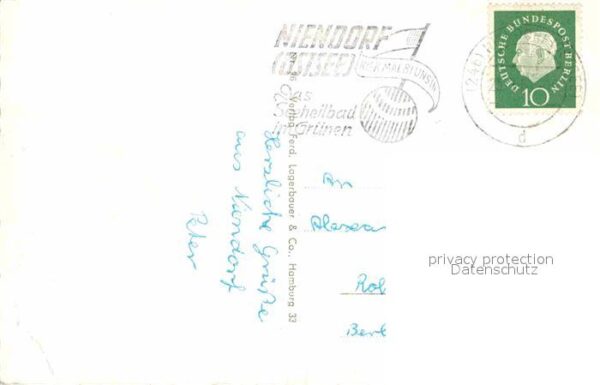 NIENDORF
(OSTSEE)
das
Seeheilbad
im Grünen
DEUTSCHE BUNDESPOST BERLIN
10
d
Verlag Ferd. Lagerbauer & Co., Hamburg 33
Herzliche Grüße
aus Niendorf
Peter
An
Rol
Berl
privacy protection
Datenschutz